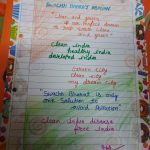 SWACHH BHARAT MISSION
"Clean and green
is our perfect dream
to keep earth clean
and green"
Clean India
healthy India
developed India
Green city
clean city
my dream city
"Swachh Bharat is only
one solution to
Pollution"
Clean India disease
free India